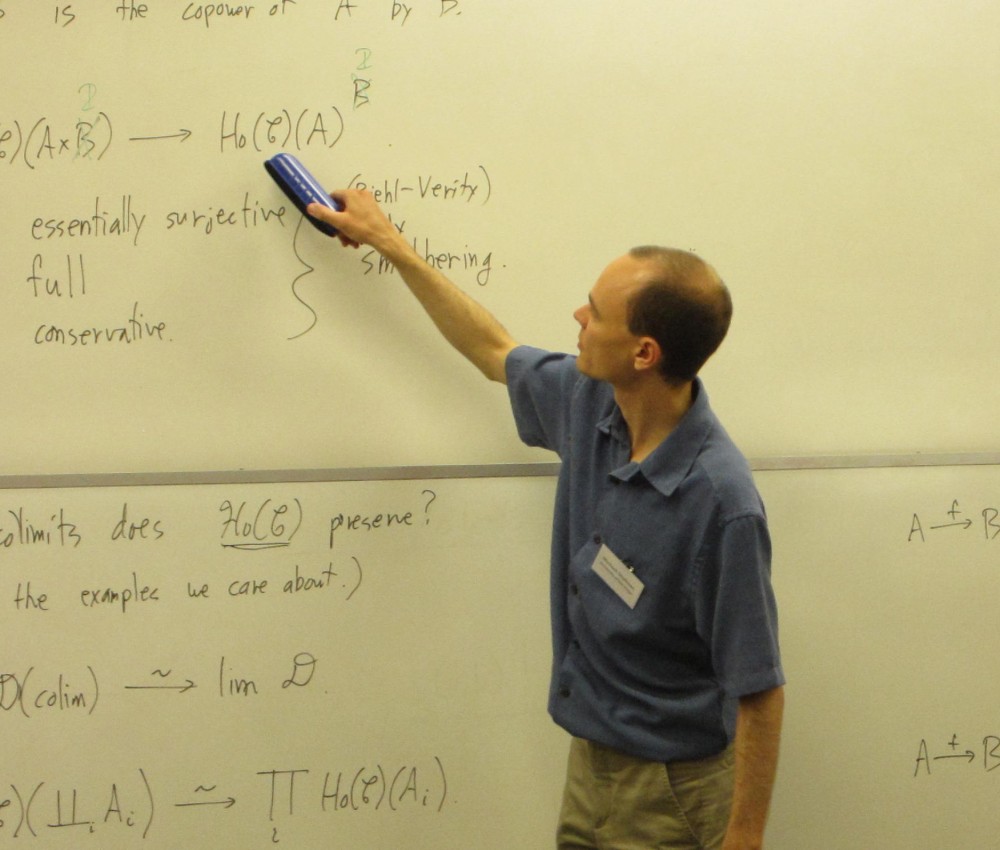 is the copower of A by B.
2 2
)(A×B) ⟶ Ho(𝒞)(A)^B
essentially surjective
full
conservative.
(Riehl-Verity)
smothering.
colimits does Ho(𝒞) preserve?
the examples we care about.)
𝒟(colim) ⥲ lim 𝒟.
)(∐_i A_i) ⥲ ∏_i Ho(𝒞)(A_i).
A →^f B
A →^f B